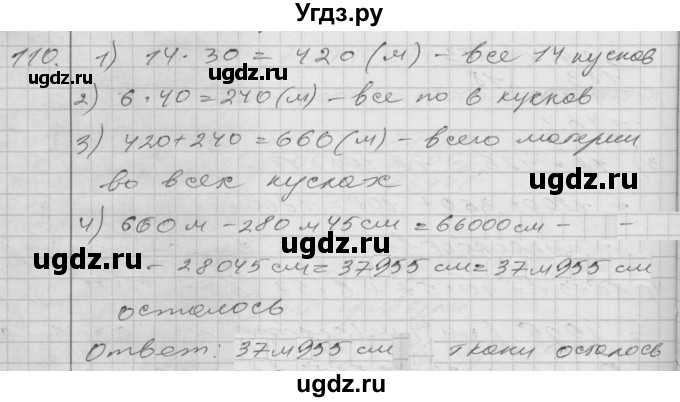 Угдз.ру
110. 1) 14 · 30 = 420 (м) – все 14 кусков
ugdz.ru ugdz.ru ugdz.ru
2) 6 · 40 = 240 (м) – все по 6 кусков
3) 420 + 240 = 660 (м) – всего материи
ugdz.ru ugdz.ru
во всех кусках
4) 660 м – 280 м 45 см = 66000 см – –
ugdz.ru ugdz.ru ugdz.ru
– 28045 см = 37955 см = 37м955 см
осталось
ugdz.ru ugdz.ru
Ответ: 37м955 см ткани осталось
ugdz.ru